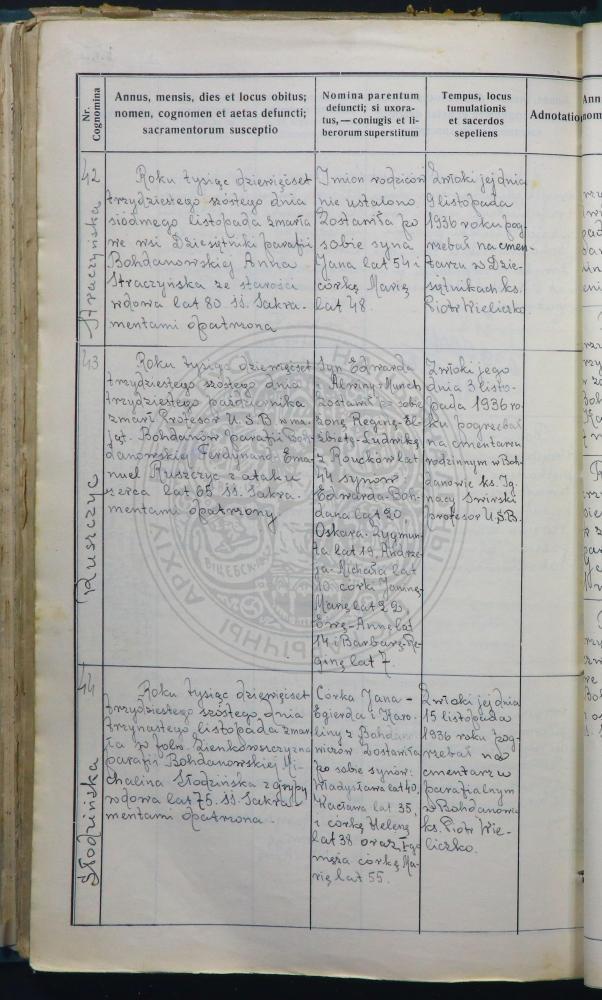 Nr.
Cognomina
Annus, mensis, dies et locus obitus;
nomen, cognomen et aetas defuncti;
sacramentorum susceptio
Nomina parentum
defuncti; si uxora-
tus, — coniugis et li-
berorum superstitum
Tempus, locus
tumulationis
et sacerdos
sepeliens
Adnotatio
42
Straczyńska
Roku tysiąc dziewięćset
trzydziestego szóstego dnia
siódmego listopada zmarła
we wsi Dziesiętniki parafii
Bohdanowskiej Anna
Straczyńska ze starości
wdowa lat 80 ss. Sakra-
mentami opatrzona
Imion rodziców
nie ustalono
Zostawiła po
sobie syna
Jana lat 54 i
córkę Marię
lat 48.
Zwłoki jej dnia
9 listopada
1936 roku pog-
rzebał na cmen-
tarzu w Dzie-
siętnikach ks.
Piotr Wieliczko.
43
Ruszczyc
Roku tysiąc dziewięćset
trzydziestego szóstego dnia
trzydziestego października
zmarł Profesor U.S.B w ma-
jąt. Bohdanów parafii Boh-
danowskiej Ferdynand-Ema-
nuel Ruszczyc z ataku
serca lat 65 ss. Sakra-
mentami opatrzony
Syn Edwarda
Alwiny-Munch
zostawił po sobie
żonę Reginę-El-
żbietę-Ludwikę
z Roucków lat
44 synów
Edwarda-Boh-
dana lat 20,
Oskara-Zygmun-
ta lat 19, Andrze-
ja-Michała lat
10 córki Janinę-
Marię lat 22,
Ewę-Annę lat
14 i Barbarę-Re-
ginę lat 7.
Zwłoki jego
dnia 3 listo-
pada 1936 ro-
ku pogrzebał
na cmentarzu
rodzinnym w Boh-
danowie ks. Ig-
nacy Świrski
profesor U.S.B.
44
Słodzińska
Roku tysiąc dziewięćset
trzydziestego szóstego dnia
trzynastego listopada zmar-
ła w folw. Zienkowszczyzna
parafii Bohdanowskiej Mi-
chalina Słodzińska z grypy
wdowa lat 75. ss. Sakra-
mentami opatrzona.
Córka Jana-
Egierda i Karo-
liny z Bohda
nowiczów Zostawiła
po sobie synów:
Władysława lat 40,
Wacława lat 35,
i córkę Helenę
lat 38 oraz I-go
męża córkę Ma-
rię lat 55.
Zwłoki jej dnia
15 listopada
1936 roku pog-
rzebał na
cmentarzu
parafialnym
w Bohdanowie
ks. Piotr Wie-
liczko.